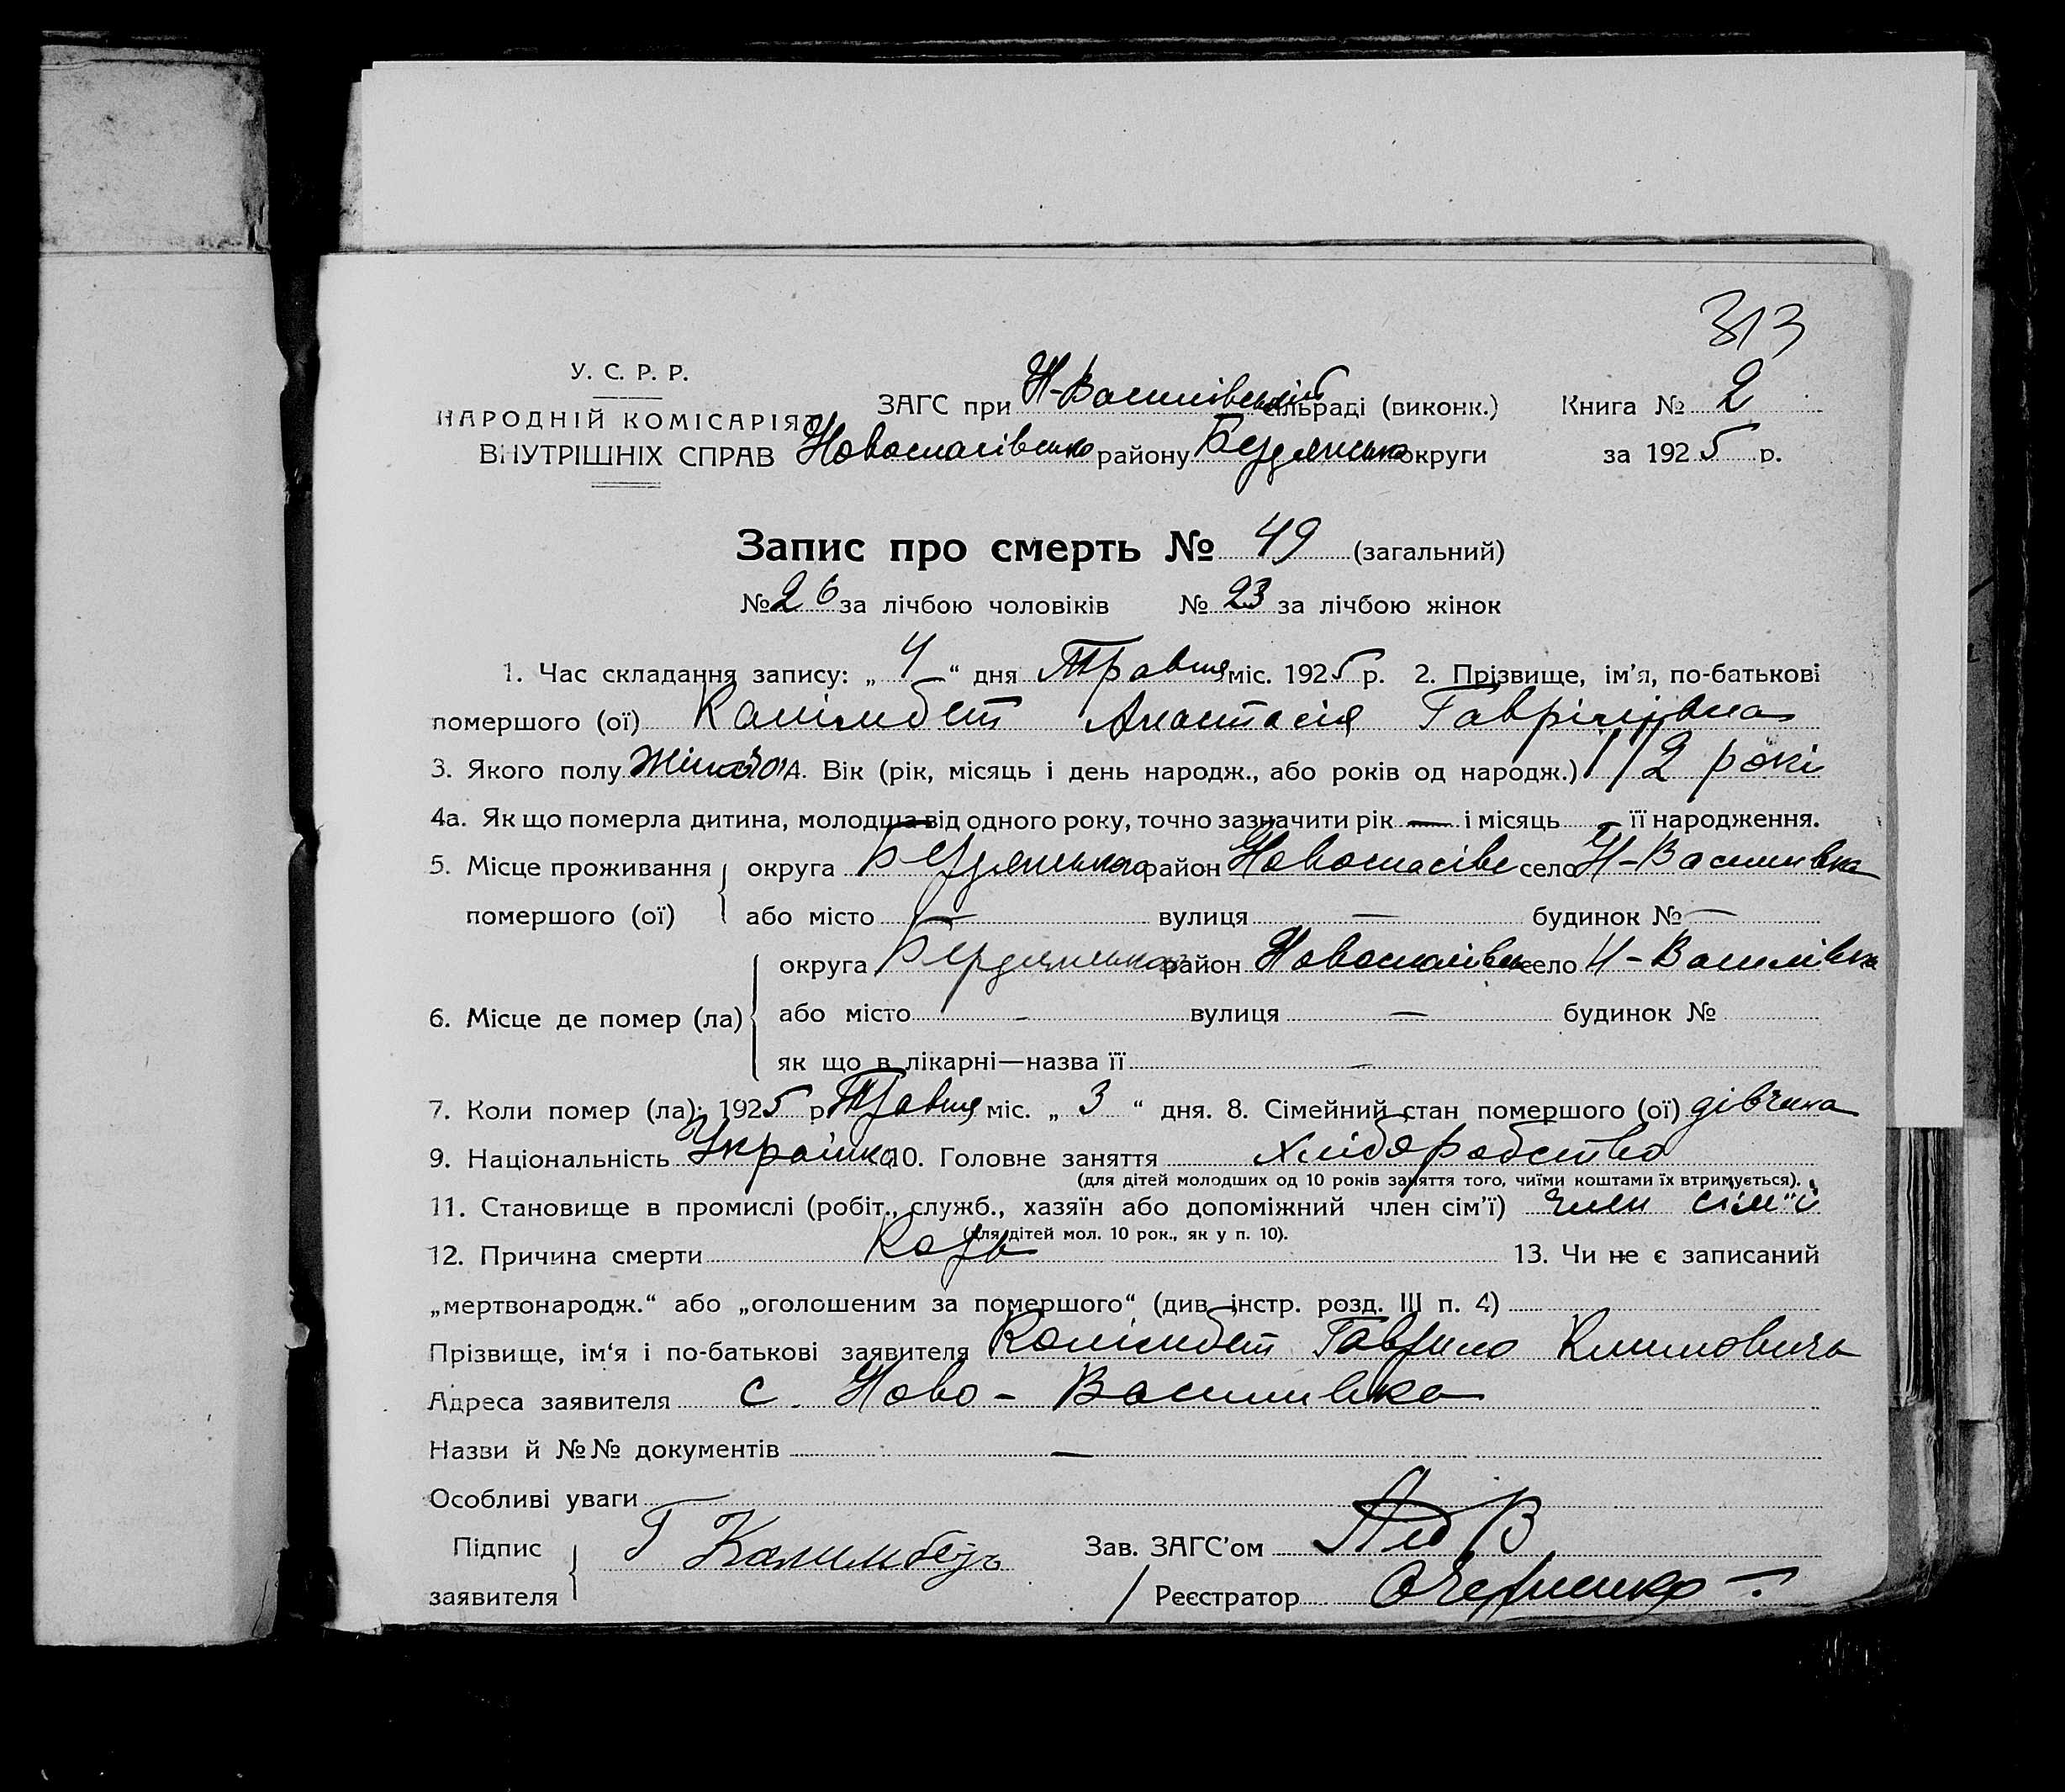 313
У. С. Р. Р.
НАРОДНІЙ КОМІСАРІЯТ
ВНУТРІШНІХ СПРАВ
ЗАГС при Н-Василівській сільраді (виконк.) Книга № 2
Новоспасівсько району Бердянсько округи за 1925 р.
Запис про смерть № 49 (загальний)
№ 26 за лічбою чоловіків № 23 за лічбою жінок
1. Час складання запису: „ 4 “ дня Травня міс. 1925 р. 2. Прізвище, ім’я, по-батькові
помершого (ої) Калімбет Анастасія Гаврілівна
3. Якого полу Жіночого 4. Вік (рік, місяць і день народж., або років од народж.) 1/2 рокі
4а. Як що померла дитина, молодша від одного року, точно зазначити рік — і місяць — її народження.
5. Місце проживання помершого (ої) округа Бердянського район Новоспасівс село Н-Василивка
або місто — вулиця — будинок № —
6. Місце де помер (ла) округа Бердянського район Новоспасівсь село Н-Василівка
або місто - вулиця — будинок №
як що в лікарні—назва її —
7. Коли помер (ла): 1925 р. Травня міс. „ 3 “ дня. 8. Сімейний стан помершого (ої) дівчина
9. Національність Українка 10. Головне заняття хліборобство
(для дітей молодших од 10 років заняття того, чиїми коштами їх втримується).
11. Становище в промислі (робіт., служб., хазяїн або допоміжний член сім’ї) член сім"ї
(для дітей мол. 10 рок., як у п. 10).
12. Причина смерти Корь 13. Чи не є записаний
„мертвонародж.“ або „оголошеним за помершого“ (див. інстр. розд. III п. 4)
Прізвище, ім‘я і по-батькові заявителя Калімбет Гаврило Климовичь
Адреса заявителя с. Ново-Василивка
Назви й №№ документів —
Особливі уваги
Підпис заявителя Г Калимбетъ Зав. ЗАГС’ом
Реєстратор